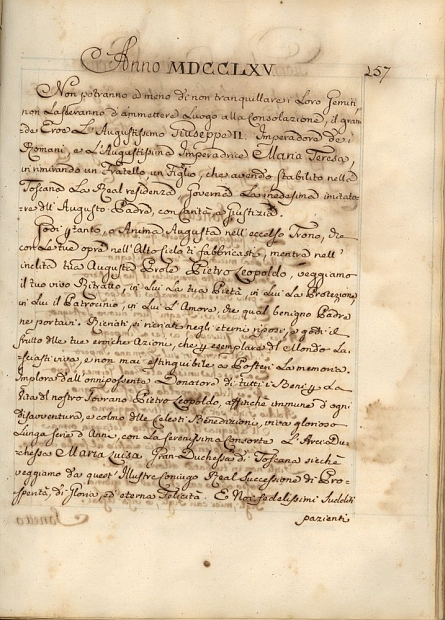 Anno MDCCLXV
257
Non potranno a meno di non tranquillare i Loro Gemiti
non Lasceranno d'ammettere Luogo alla Consolazione, il gran
de Eroe L'Augustissimo Giuseppe II. Imperadore de i
Romani, e L'Augustissima Imperadrice Maria Teresa,
in rimirando un Fratello, un Figlio, che avendo stabilito nella
Toscana La Real residenza Governa La medesima imitato
re dll'Augusto Padre, con Carità, e Giustizia.
Godi p tanto, o Anima Augusta nell'eccelso Trono, che
con le tue opre nell'Alto Cielo ti fabbricasti, mentre nell'
inclita tua Augusta Prole Pietro Leopoldo, veggiamo
il tuo vivo Ritratto, in Lui La tua Pietà, in Lui La Protezione,
in Lui il Patrocinio, in Lui L'Amore, che qual benigno Padre
ne portavi. Bieniati, si ricreati negli eterni riposi, e godi il
frutto dlle tue eroiche Azioni, che p esemplare dl Mondo La
sciasti viva, e non mai estinguibile a Posteri La memoria.
Implora dall'onnipossente Donatore di tutti i Beni p La
Vita dl nostro Sovrano Pietro Leopoldo, affinchè immune d'ogni
disavventura, e colmo dlle Celesti Benedizioni, viva glorioso
Lunga serie d'Anni, con La serenissima Consorte L'Arcidu
chessa Maria Luisa Gran-Duchessa di Toscana sicchè
veggiamo da quest'Illustre Coniugio Real Successione di Pro
sperità, di Gloria, ed eterna Felicità. E Noi fedelissimi Sudditi
pazienti